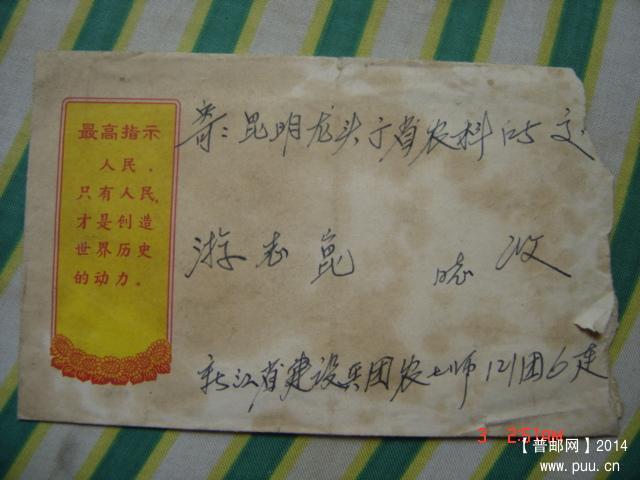 最高指示
人民，
只有人民，
才是创造
世界历史
的动力。
寄：昆明龙头亍省农科所交
游志崑 同志 收
新江省建设兵团农七师121团6连
3 2:51AM
【普邮网】2014
www.puu.cn